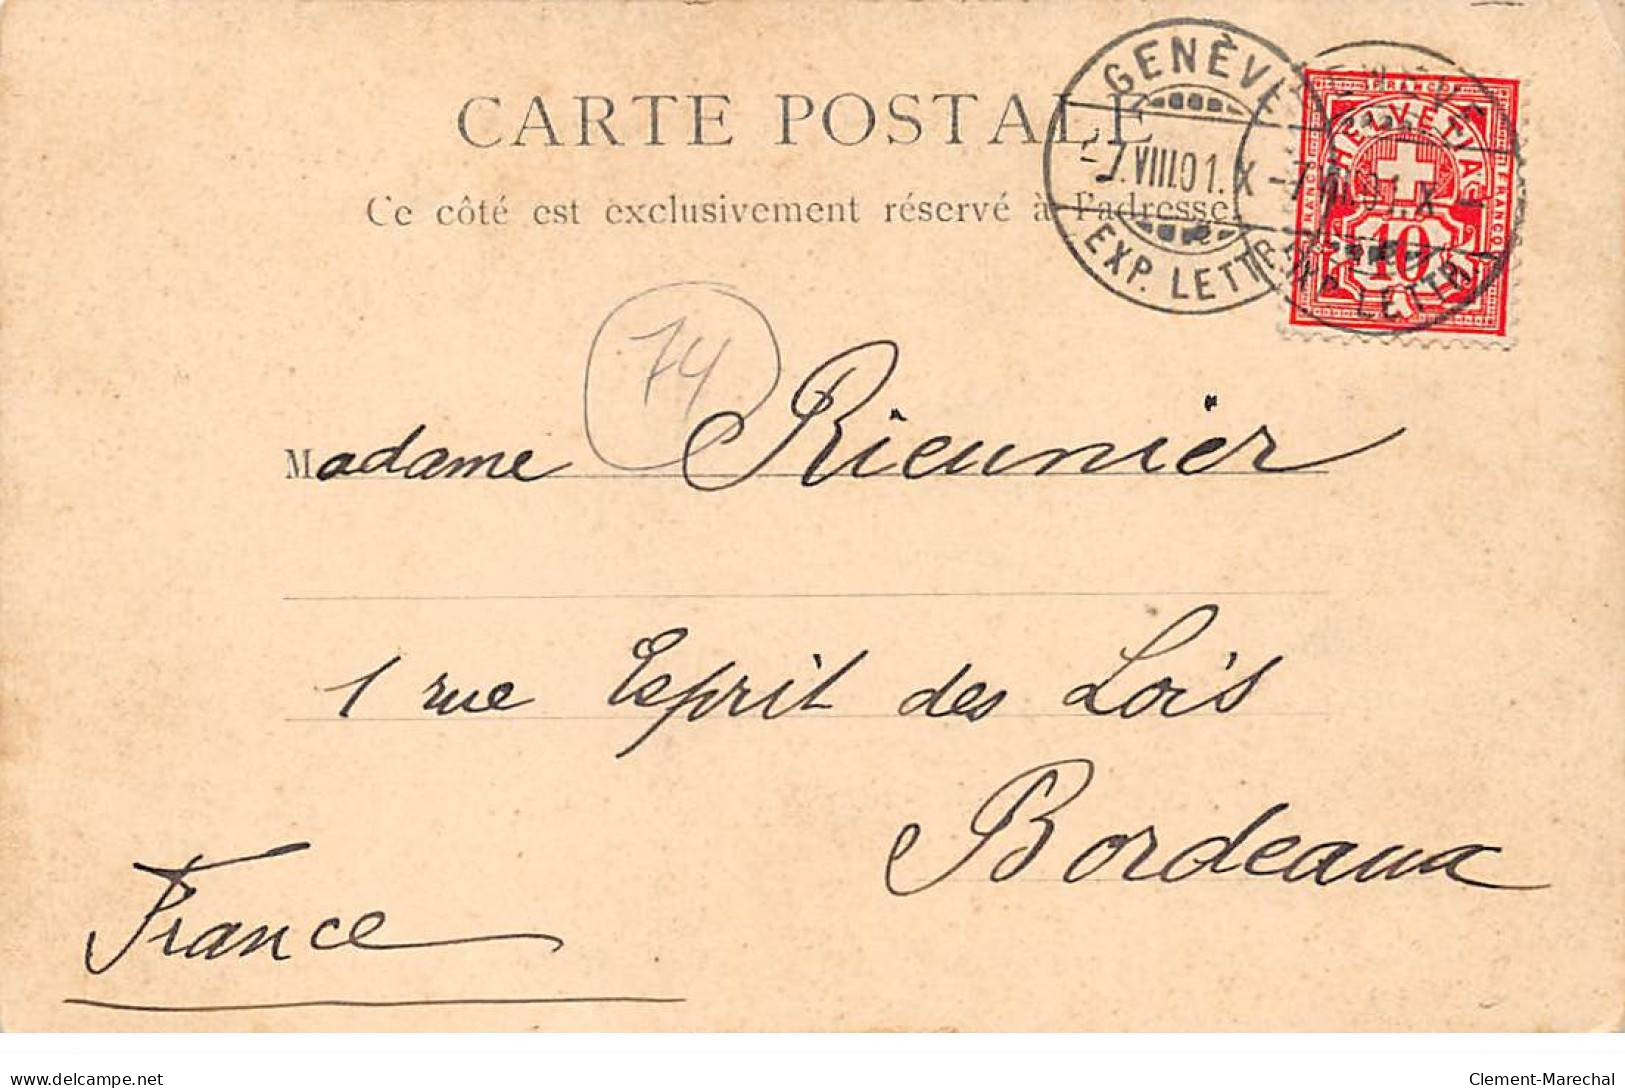 CARTE POSTALE
Ce côté est exclusivement réservé à l'adresse.
GENÈVE
-7.VIII.01.X
EXP. LETTR.
-7.VIII.01.X
EXP. LETTR.
FRANCO
HELVETIA
FRANCO
FRANCO
10
74
Madame Rieunier
1 rue Esprit des Lois
Bordeaux
France
delcampe.net
Clement-Marechal